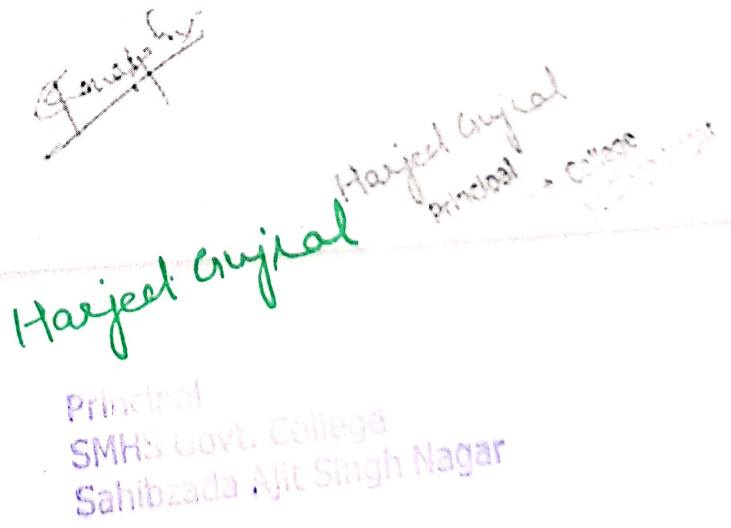 Harjeet Gujral
Principal College
Harjeet Gujral
Principal
SMHS Govt. College
Sahibzada Ajit Singh Nagar